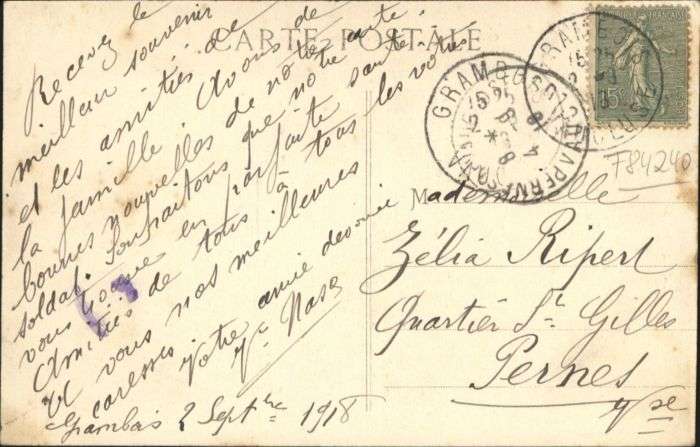 CARTE POSTALE
Recevez le
meilleur souvenir
et les amitiés de
la famille. Avons de
bonnes nouvelles de notre
soldat. Souhaitons que notre carte
vous trouve en parfaite santé.
Amitiés de tous à tous les votres
Et vous nos meilleures
caresses Votre amie dévouée
Grambois 2 Septbre 1918
Mademoiselle
Zélia Ripert
Quartier St. Gilles
Pernes
Vse
784240
GRAMBOIS
15c